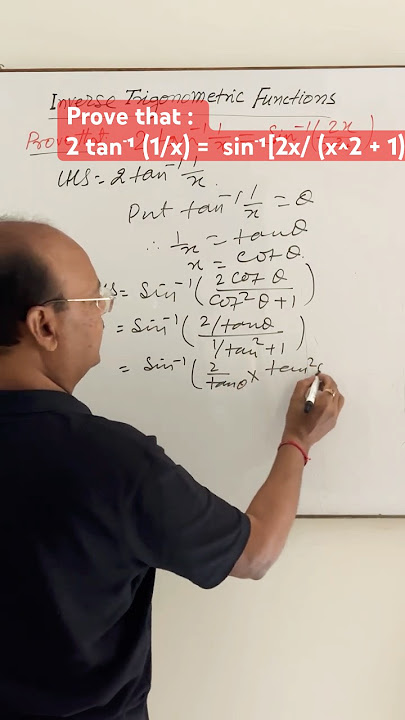 Inverse Trigonometric Functions
Prove that :
2 tan⁻¹ (1/x) = sin⁻¹[2x/ (x^2 + 1)
LHS = 2 tan⁻¹ 1/x.
Put tan⁻¹ 1/x = θ
∴ 1/x = tanθ
x = cot θ.
S = Sin⁻¹ ( 2 cot θ / cot² θ + 1 )
= Sin⁻¹ ( 2/tanθ / 1/tan² + 1 )
= Sin⁻¹ ( 2/tanθ × tan²